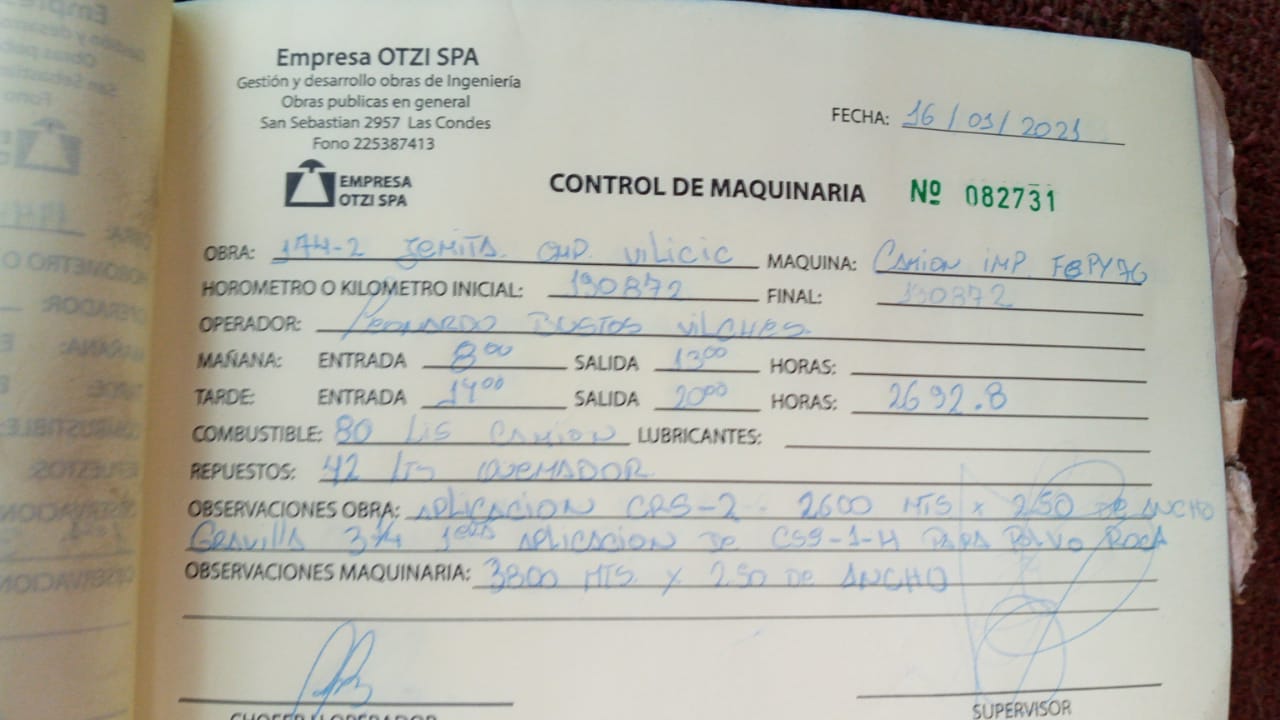 Empresa OTZI SPA
Gestión y desarrollo obras de Ingeniería
Obras publicas en general
San Sebastian 2957 Las Condes
Fono 225387413
EMPRESA
OTZI SPA
FECHA: 16 / 01 / 2021
CONTROL DE MAQUINARIA Nº 082731
OBRA: 174-2 VILICIC MAQUINA: CAMION IMP.
HOROMETRO O KILOMETRO INICIAL: 190872 FINAL: 190872
OPERADOR: LEONARDO BUSTOS VILCHES.
MAÑANA: ENTRADA 8⁰⁰ SALIDA 13⁰⁰ HORAS:
TARDE: ENTRADA 14⁰⁰ SALIDA 20⁰⁰ HORAS: 2692.8
COMBUSTIBLE: 80 LTS CAMION LUBRICANTES:
REPUESTOS: 42 LTS QUEMADOR
OBSERVACIONES OBRA: APLICACION CRS-2. 2600 MTS x 2.50 DE ANCHO
GRAVILLA 3/4 1era APLICACION DE CSS-1-H PARA POLVO ROCA
OBSERVACIONES MAQUINARIA: 3800 MTS. X 2.50 DE ANCHO
CHOFER U OPERADOR
SUPERVISOR